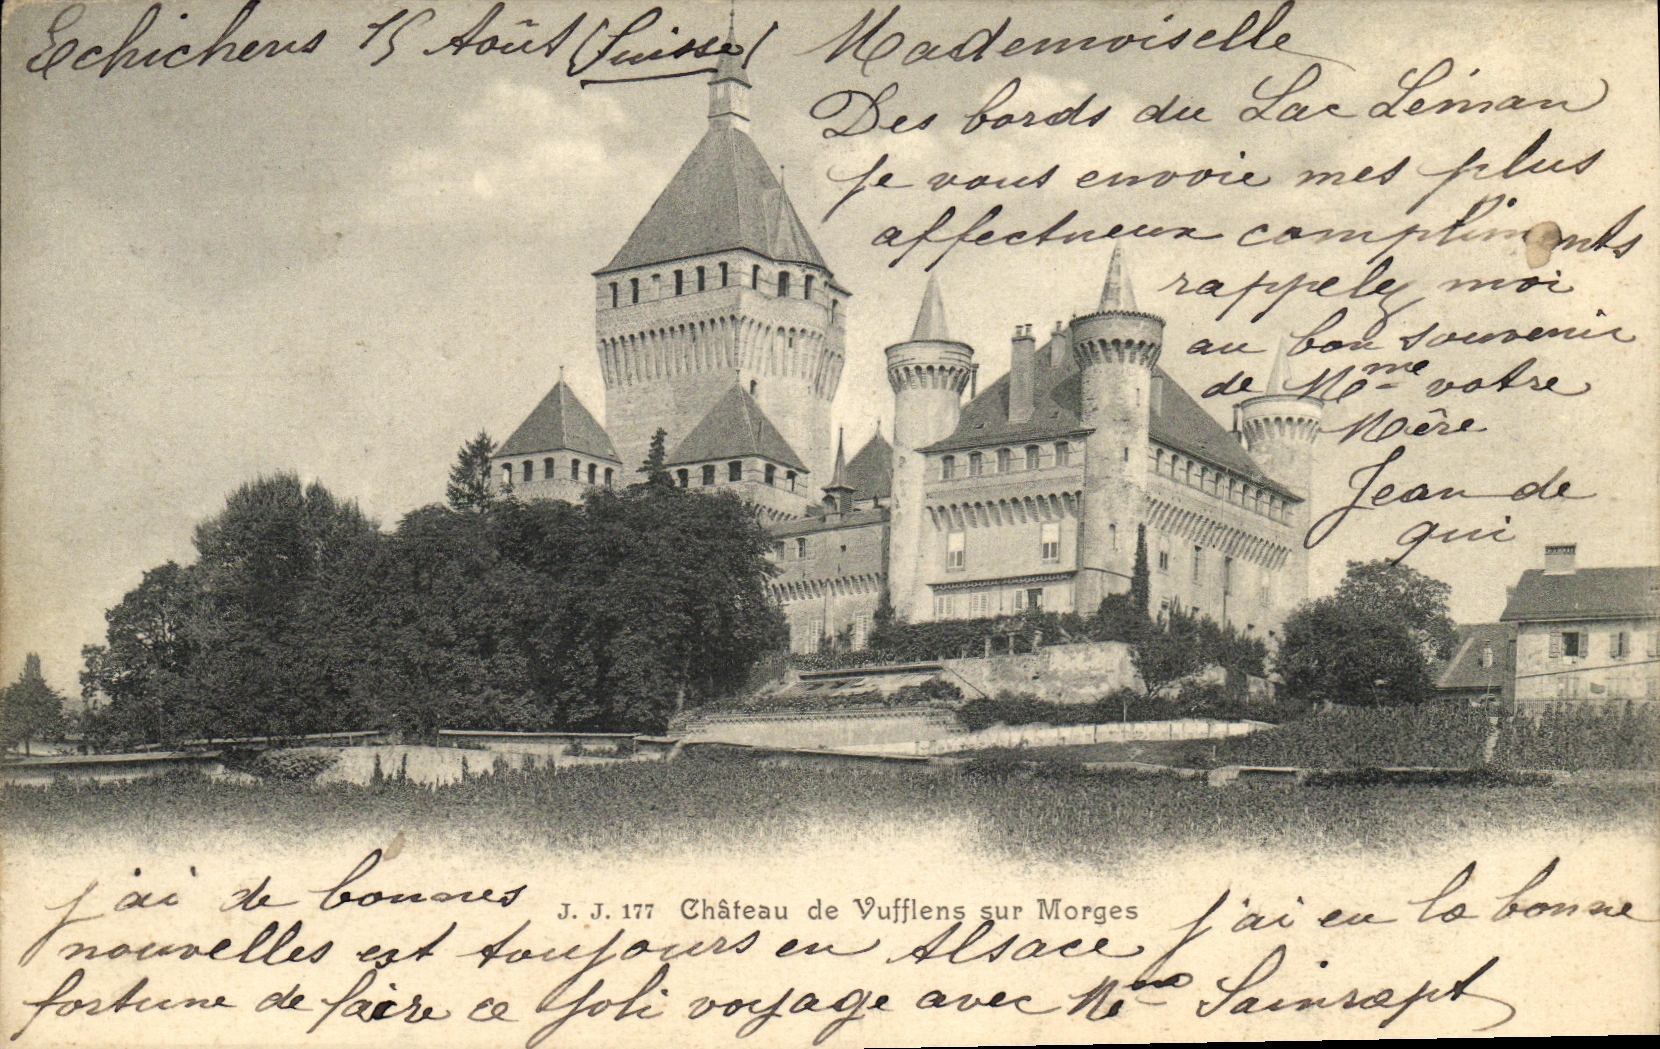 Echichens 15 Août (Suisse)
Mademoiselle
Des bords du Lac Léman
je vous envoie mes plus
affectueux compliments
rappelez moi
au bon souvenir
de Mme votre
Mère
Jean de
qui
j'ai de bonnes
nouvelles est toujours en Alsace
J. J. 177 Château de Vufflens sur Morges
j'ai eu la bonne
fortune de faire ce joli voyage avec Mme Sainsœpt